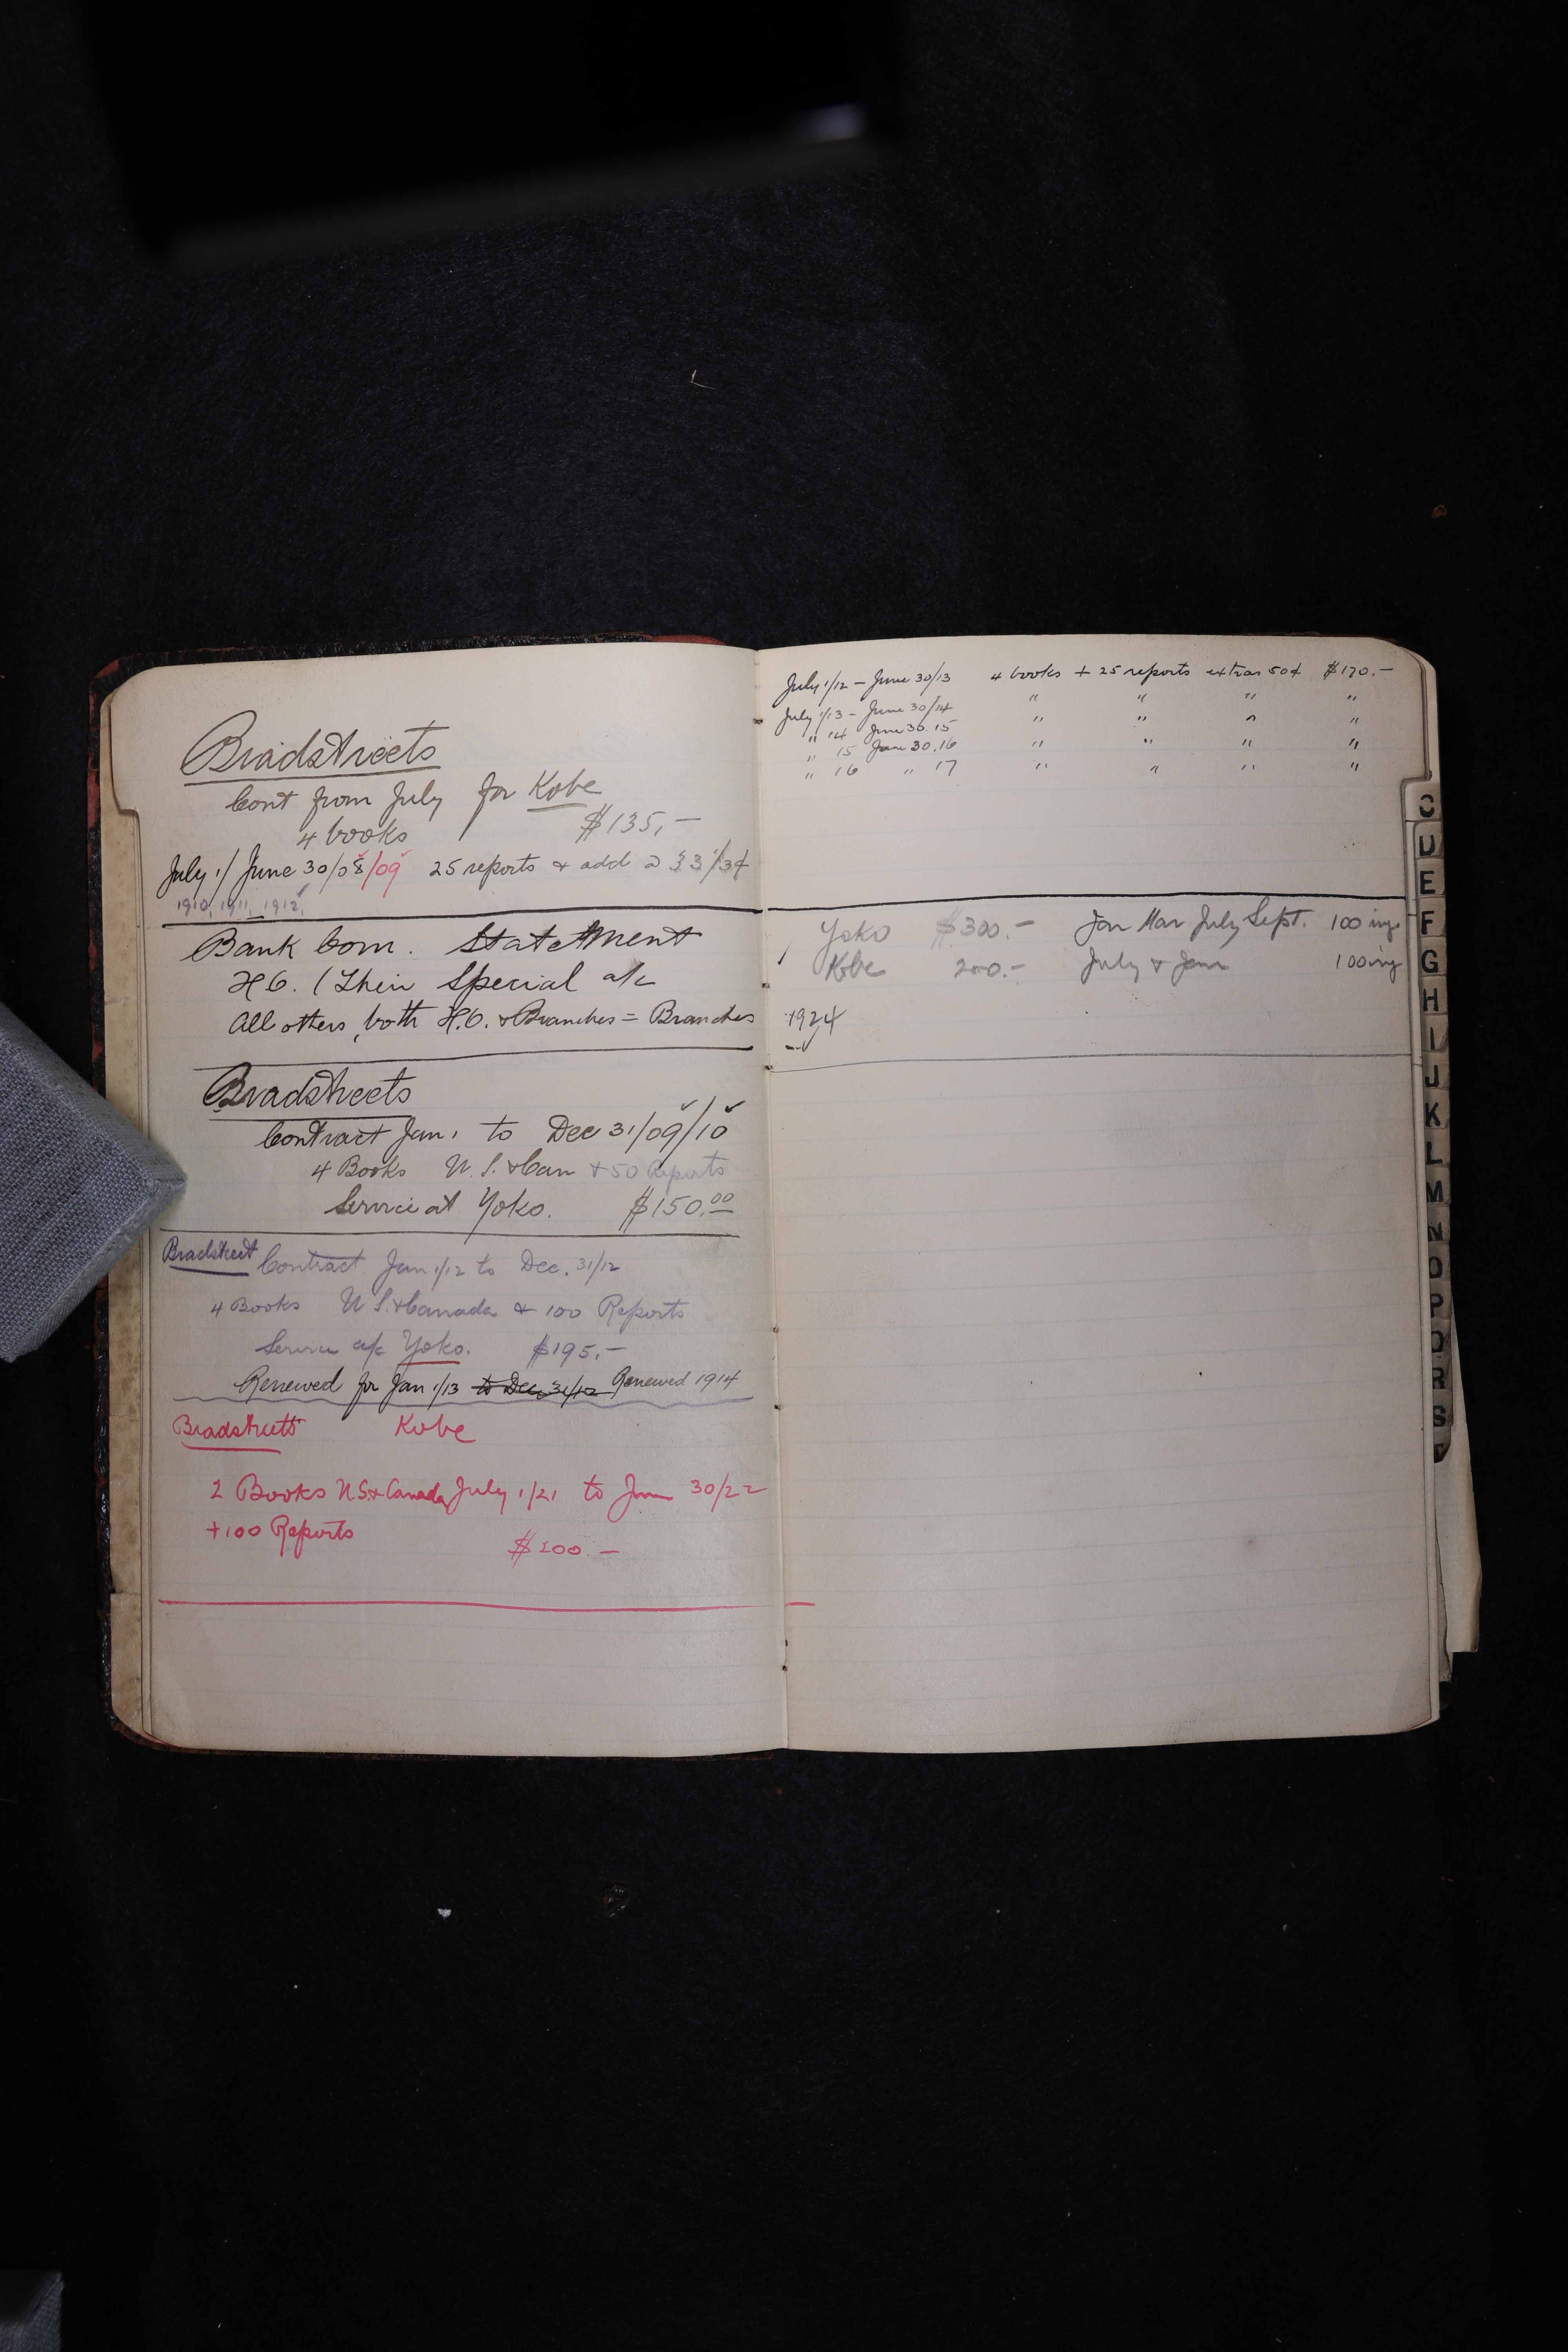 Bradstreets
Cont from July for Kobe
4 books $135,-
July 1/ June 30/08/09 25 reports & add @ 33 1/3¢
1910, 1911, 1912,
Bank Com. Statement
H.O. (Their Special a/c
All others, both H.O. & Branches = Branches
Bradstreets
Contract Jan 1 to Dec 31/09/10
4 Books U.S. & Can + 50 Reports
Service at Yoko. $150.00
Bradstreet Contract Jan 1/12 to Dec. 31/12
4 Books U.S. & Canada & 100 Reports
Service a/c Yoko. $195,-
Renewed for Jan 1/13 to Dec 31/12 Renewed 1914
Bradstreets Kobe
2 Books U.S. & Canada July 1/21 to June 30/22
+ 100 Reports
$200 -
July 1/12 - June 30/13 4 books + 25 reports extras 50¢ $170.-
July 1/13 - June 30/14 " " " "
" 14 June 30.15 " " " "
" 15 June 30.16 " " " "
" 16 " 17 " " " "
Yoko $300.- Jan Mar July Sept. 100 inq
Kobe 200.- July & Jan 100 inq
1924
C
D
E
F
G
H
I
J
K
L
M
N
O
P
Q
R
S
T